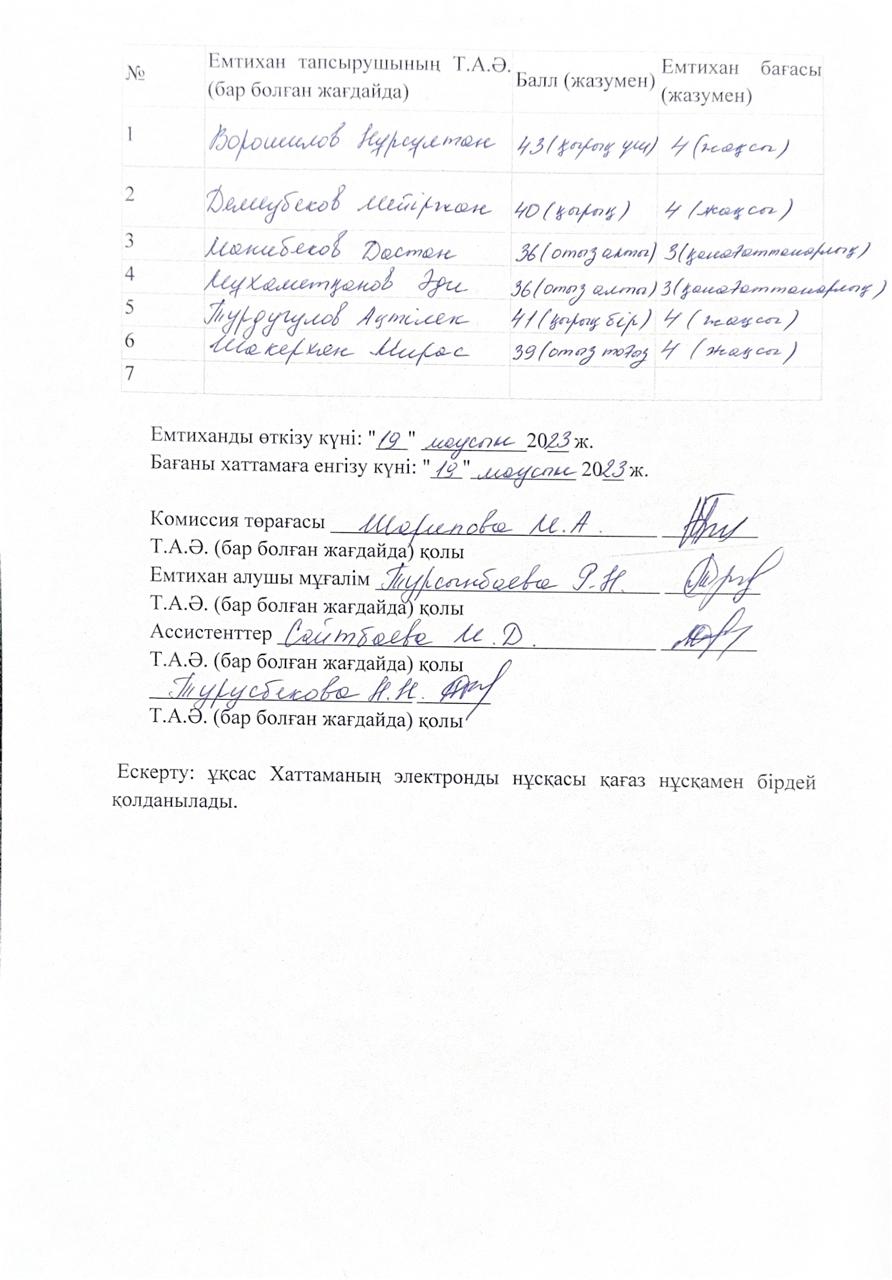 № Емтихан тапсырушының Т.А.Ә. (бар болған жағдайда) Балл (жазумен) Емтихан бағасы (жазумен)
1 Ворошилов Нұрсұлтан 43 (қырық үш) 4 (жақсы)
2 Демеубеков Мейіржан 40 (қырық) 4 (жақсы)
3 Манибеков Дастан 36 (отыз алты) 3 (қанағаттанарлық)
4 Мұхаметқанов Әди 36 (отыз алты) 3 (қанағаттанарлық)
5 Турдугулов Ақтілек 41 (қырық бір) 4 (жақсы)
6 Шакерхан Мирас 39 (отыз тоғыз 4 (жақсы)
7
Емтиханды өткізу күні: "19" маусым 2023 ж.
Бағаны хаттамаға енгізу күні: "19" маусым 2023 ж.
Комиссия төрағасы Шарипова М.А.
Т.А.Ә. (бар болған жағдайда) қолы
Емтихан алушы мұғалім Турсынбаева Р.Н.
Т.А.Ә. (бар болған жағдайда) қолы
Ассистенттер Сайтбаева М.Д.
Т.А.Ә. (бар болған жағдайда) қолы
Турусбекова Н.Н.
Т.А.Ә. (бар болған жағдайда) қолы
Ескерту: ұқсас Хаттаманың электронды нұсқасы қағаз нұсқамен бірдей
қолданылады.